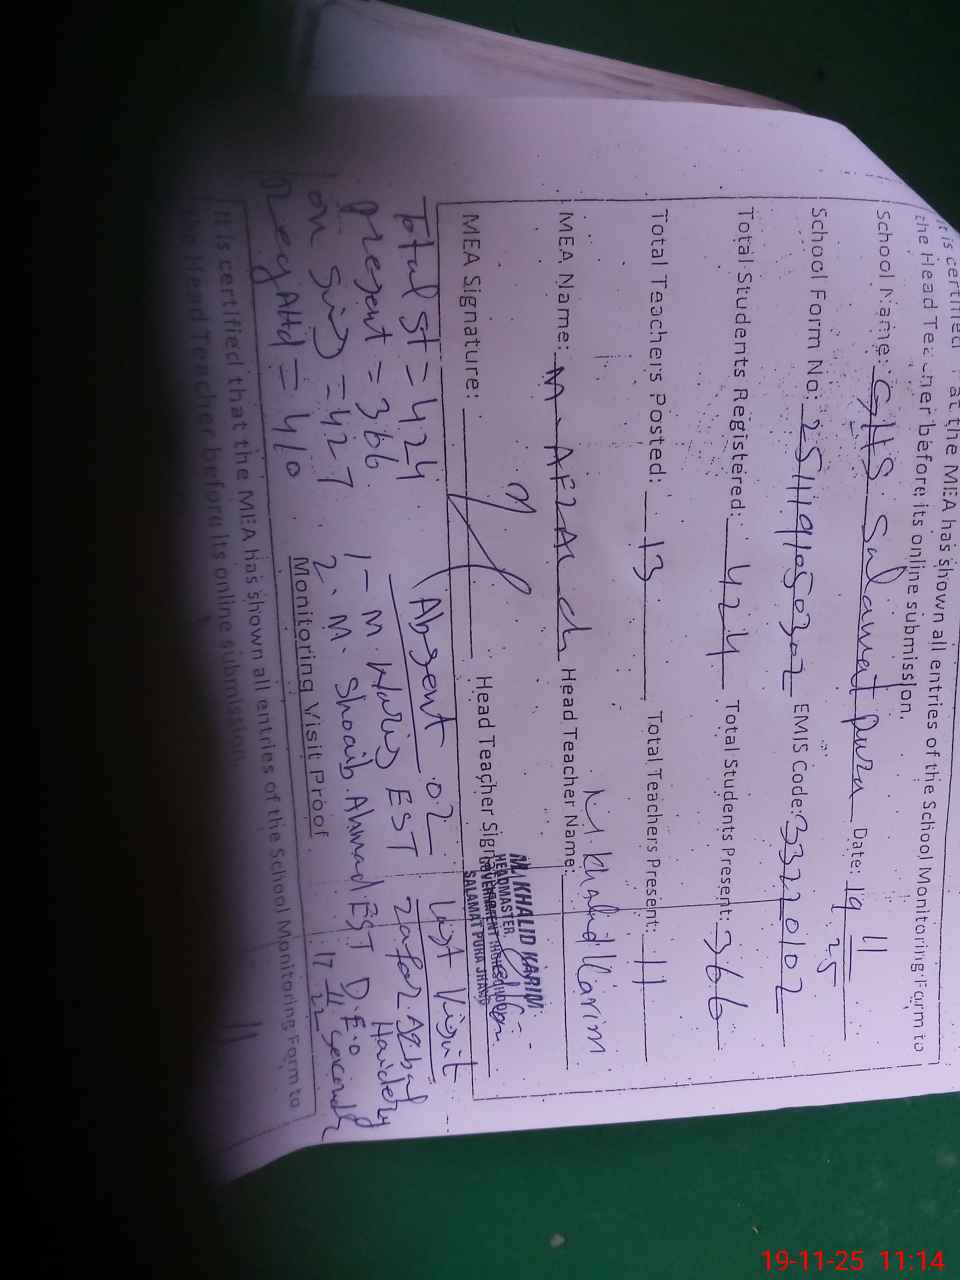 It is certified that the MEA has shown all entries of the School Monitoring Form to
the Head Teacher before its online submission.
School Name: GHS Salamat Pura Date: 19 11 25
School Form No: 2511910502 EMIS Code: 33220102
Total Students Registered: 424 Total Students Present: 366
Total Teachers Posted: 13 Total Teachers Present: 11
MEA Name: M. AFZAL Head Teacher Name: M Khalid Karim
MEA Signature: Head Teacher Signature
M. KHALID KARIM
HEADMASTER
GOVERNMENT HIGH SCHOOL
SALAMAT PURA JHANG
Total St = 424 Absent 02 Last Visit
Present = 366 1- M. Waris EST Zafar Iqbal
Haidery
on Sis = 427 2. M. Shoaib Ahmad EST D.E.O
Reg Attd = 410 17 11 Secondary
Monitoring Visit Proof
It is certified that the MEA has shown all entries of the School Monitoring Form to
the Head Teacher before its online submission
19-11-25 11:14